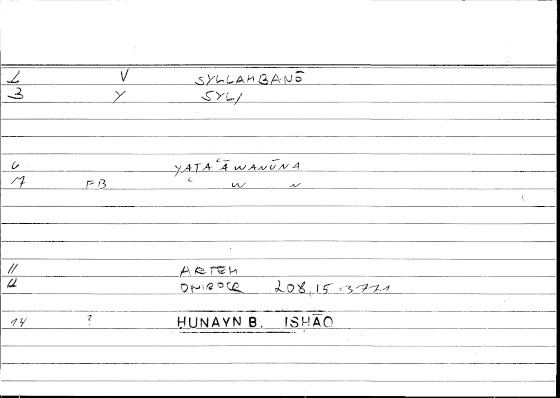 1 V SYLLAMBANŌ
3 Y SYL/
6 YATAʿĀWANŪNA
7 FB ʿ W N
11 ARTEM
12 ONIROCR 208,15=377.1
14 ? HUNAYN B. ISHĀQ